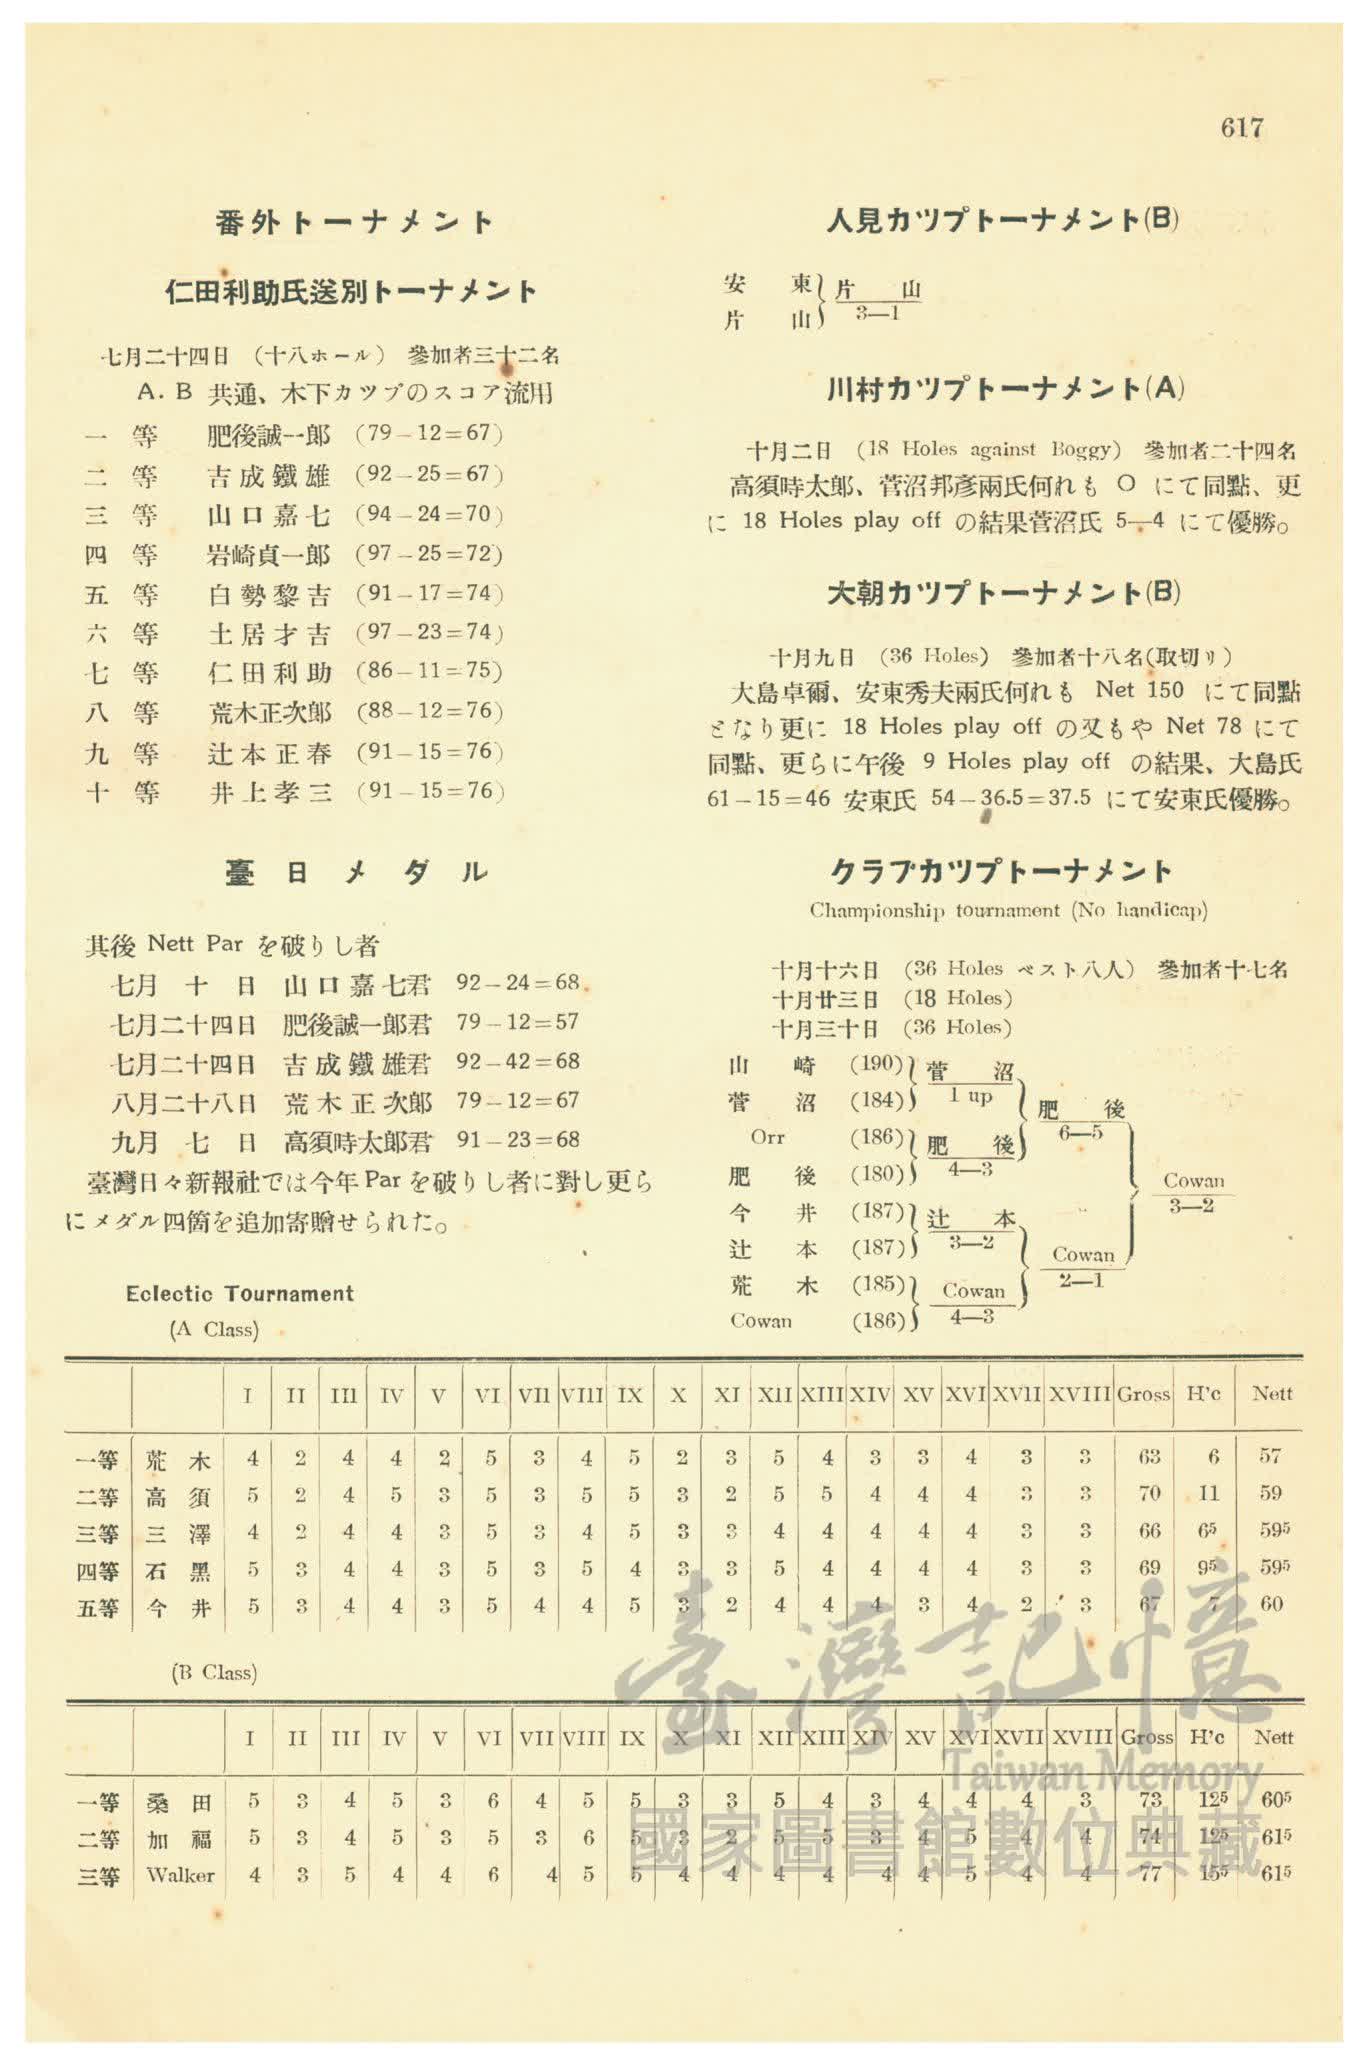 617
番外トーナメント
仁田利助氏送別トーナメント
七月二十四日 (十八ホール) 參加者三十二名
A. B 共通、木下カツプのスコア流用
一等 肥後誠一郎 (79－12＝67)
二等 吉成鐵雄 (92－25＝67)
三等 山口嘉七 (94－24＝70)
四等 岩崎貞一郎 (97－25＝72)
五等 白勢黎吉 (91－17＝74)
六等 土居才吉 (97－23＝74)
七等 仁田利助 (86－11＝75)
八等 荒木正次郎 (88－12＝76)
九等 辻本正春 (91－15＝76)
十等 井上孝三 (91－15＝76)
臺日メダル
其後 Nett Par を破りし者
七月十日 山口嘉七君 92－24＝68
七月二十四日 肥後誠一郎君 79－12＝57
七月二十四日 吉成鐵雄君 92－42＝68
八月二十八日 荒木正次郎 79－12＝67
九月七日 高須時太郎君 91－23＝68
臺灣日々新報社では今年 Par を破りし者に對し更ら
にメダル四箇を追加寄贈せられた。
人見カツプトーナメント(B)
安東 片山
片山 3—1
川村カツプトーナメント(A)
十月二日 (18 Holes against Boggy) 參加者二十四名
高須時太郎、菅沼邦彥兩氏何れも O にて同點、更
に 18 Holes play off の結果菅沼氏 5—4 にて優勝。
大朝カツプトーナメント(B)
十月九日 (36 Holes) 參加者十八名(取切リ)
大島卓爾、安東秀夫兩氏何れも Net 150 にて同點
となり更に 18 Holes play off の又もや Net 78 にて
同點、更らに午後 9 Holes play off の結果、大島氏
61－15＝46 安東氏 54－36.5＝37.5 にて安東氏優勝。
クラブカツプトーナメント
Championship tournament (No handicap)
十月十六日 (36 Holes ベスト八人) 參加者十七名
十月廿三日 (18 Holes)
十月三十日 (36 Holes)
山崎 (190) 菅沼
菅沼 (184) 1 up 肥後
Orr (186) 肥後 6—5
肥後 (180) 4—3 Cowan
今井 (187) 辻本 3—2
辻本 (187) 3—2 Cowan
荒木 (185) Cowan 2—1
Cowan (186) 4—3
Eclectic Tournament
(A Class)
I II III IV V VI VII VIII IX X XI XII XIII XIV XV XVI XVII XVIII Gross H'c Nett
一等 荒木 4 2 4 4 2 5 3 4 5 2 3 5 4 3 3 4 3 3 63 6 57
二等 高須 5 2 4 5 3 5 3 5 5 3 2 5 5 4 4 4 3 3 70 11 59
三等 三澤 4 2 4 4 3 5 3 4 5 3 3 4 4 4 4 4 3 3 66 6⁵ 59⁵
四等 石黑 5 3 4 4 3 5 3 5 4 3 3 5 4 4 4 4 3 3 69 9⁵ 59⁵
五等 今井 5 3 4 4 3 5 4 4 5 3 2 4 4 4 3 4 2 3 67 7 60
(B Class)
I II III IV V VI VII VIII IX X XI XII XIII XIV XV XVI XVII XVIII Gross H'c Nett
一等 桑田 5 3 4 5 3 6 4 5 5 3 3 5 4 3 4 4 4 3 73 12⁵ 60⁵
二等 加福 5 3 4 5 3 5 3 6 5 3 2 5 5 3 4 5 4 4 74 12⁵ 61⁵
三等 Walker 4 3 5 4 4 6 4 5 5 4 4 4 4 4 4 5 4 4 77 15⁵ 61⁵
臺灣記憶
Taiwan Memory
國家圖書館數位典藏